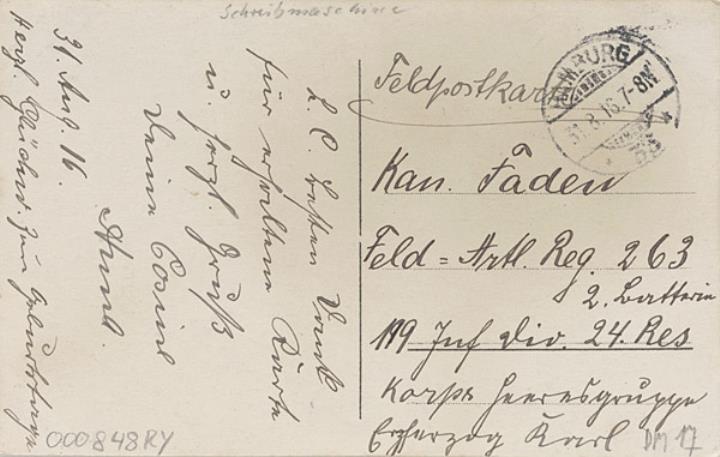 Schreibmaschine
31. Aug. 16.
Herzl. Glückw. zum Geburtstage
L. C. besten Dank
für erhaltene Karte
u. herzl. Gruß
Deine Cosine
Feldpostkarte
HAMBURG
31.8.16.7-8N
Kan. Faden
Feld=Artl. Reg. 263
2. Batterie
119 Inf Div. 24. Res
Korps Heeresgruppe
Erzherzog Karl
000848RY
DM 17